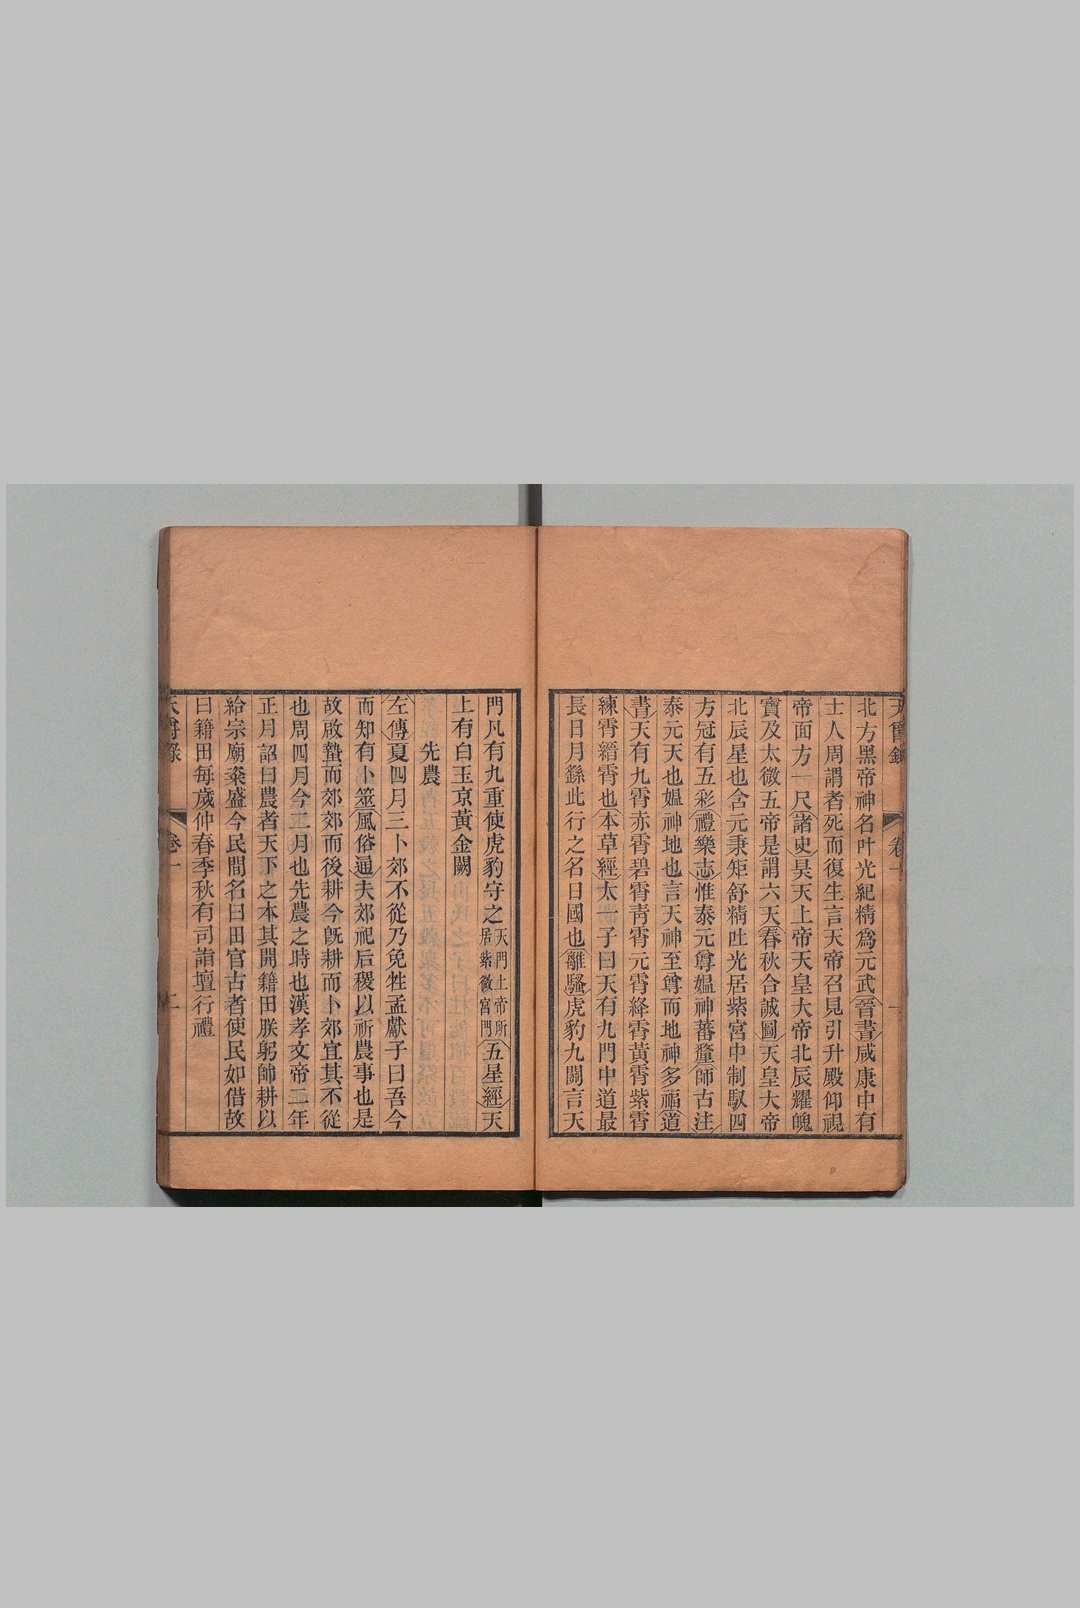 北方黑帝神名叶光紀精爲元武晉書咸康中有
士人周謂者死而復生言天帝召見引升殿仰視
帝面方一尺諸史昊天上帝天皇大帝北辰耀魄
寶及太微五帝是謂六天春秋合誠圖天皇大帝
北辰星也含元秉矩舒精吐光居紫宮中制馭四
方冠有五彩禮樂志惟泰元尊媼神蕃釐師古注
泰元天也媼神地也言天神至尊而地神多福道
書天有九霄赤霄碧霄靑霄元霄絳霄黃霄紫霄
練霄縉霄也本草經太一子曰天有九門中道最
長日月繇此行之名曰國也離騷虎豹九關言天
卷一
門凡有九重使虎豹守之天門上帝所居紫微宮門五星經天
上有白玉京黃金闕
先農
左傳夏四月三卜郊不從乃免牲孟獻子曰吾今
而知有卜筮風俗通夫郊祀后稷以祈農事也是
故啟蟄而郊郊而後耕今旣耕而卜郊宜其不從
也周四月今二月也先農之時也漢孝文帝二年
正月詔曰農者天下之本其開籍田朕躬帥耕以
給宗廟粢盛今民間名曰田官古者使民如借故
曰籍田每歲仲春季秋有司詣壇行禮
卷一
二